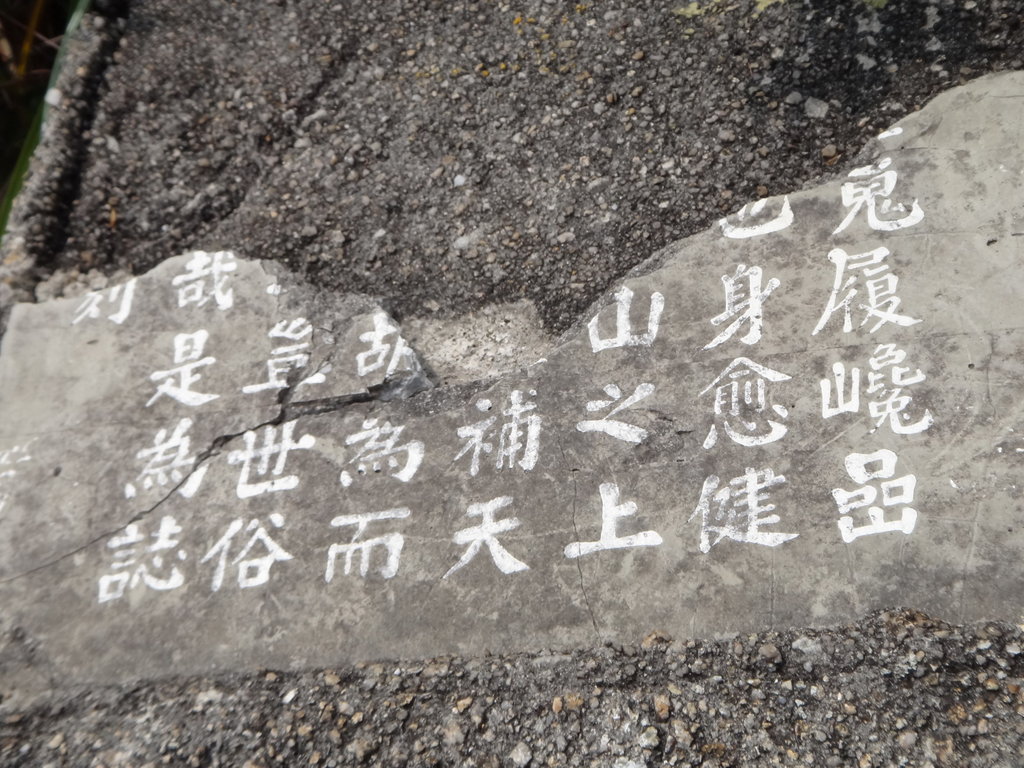 履巉嵒
也身愈健
山之上
補天
故為而
豈世俗
哉是為誌
刻